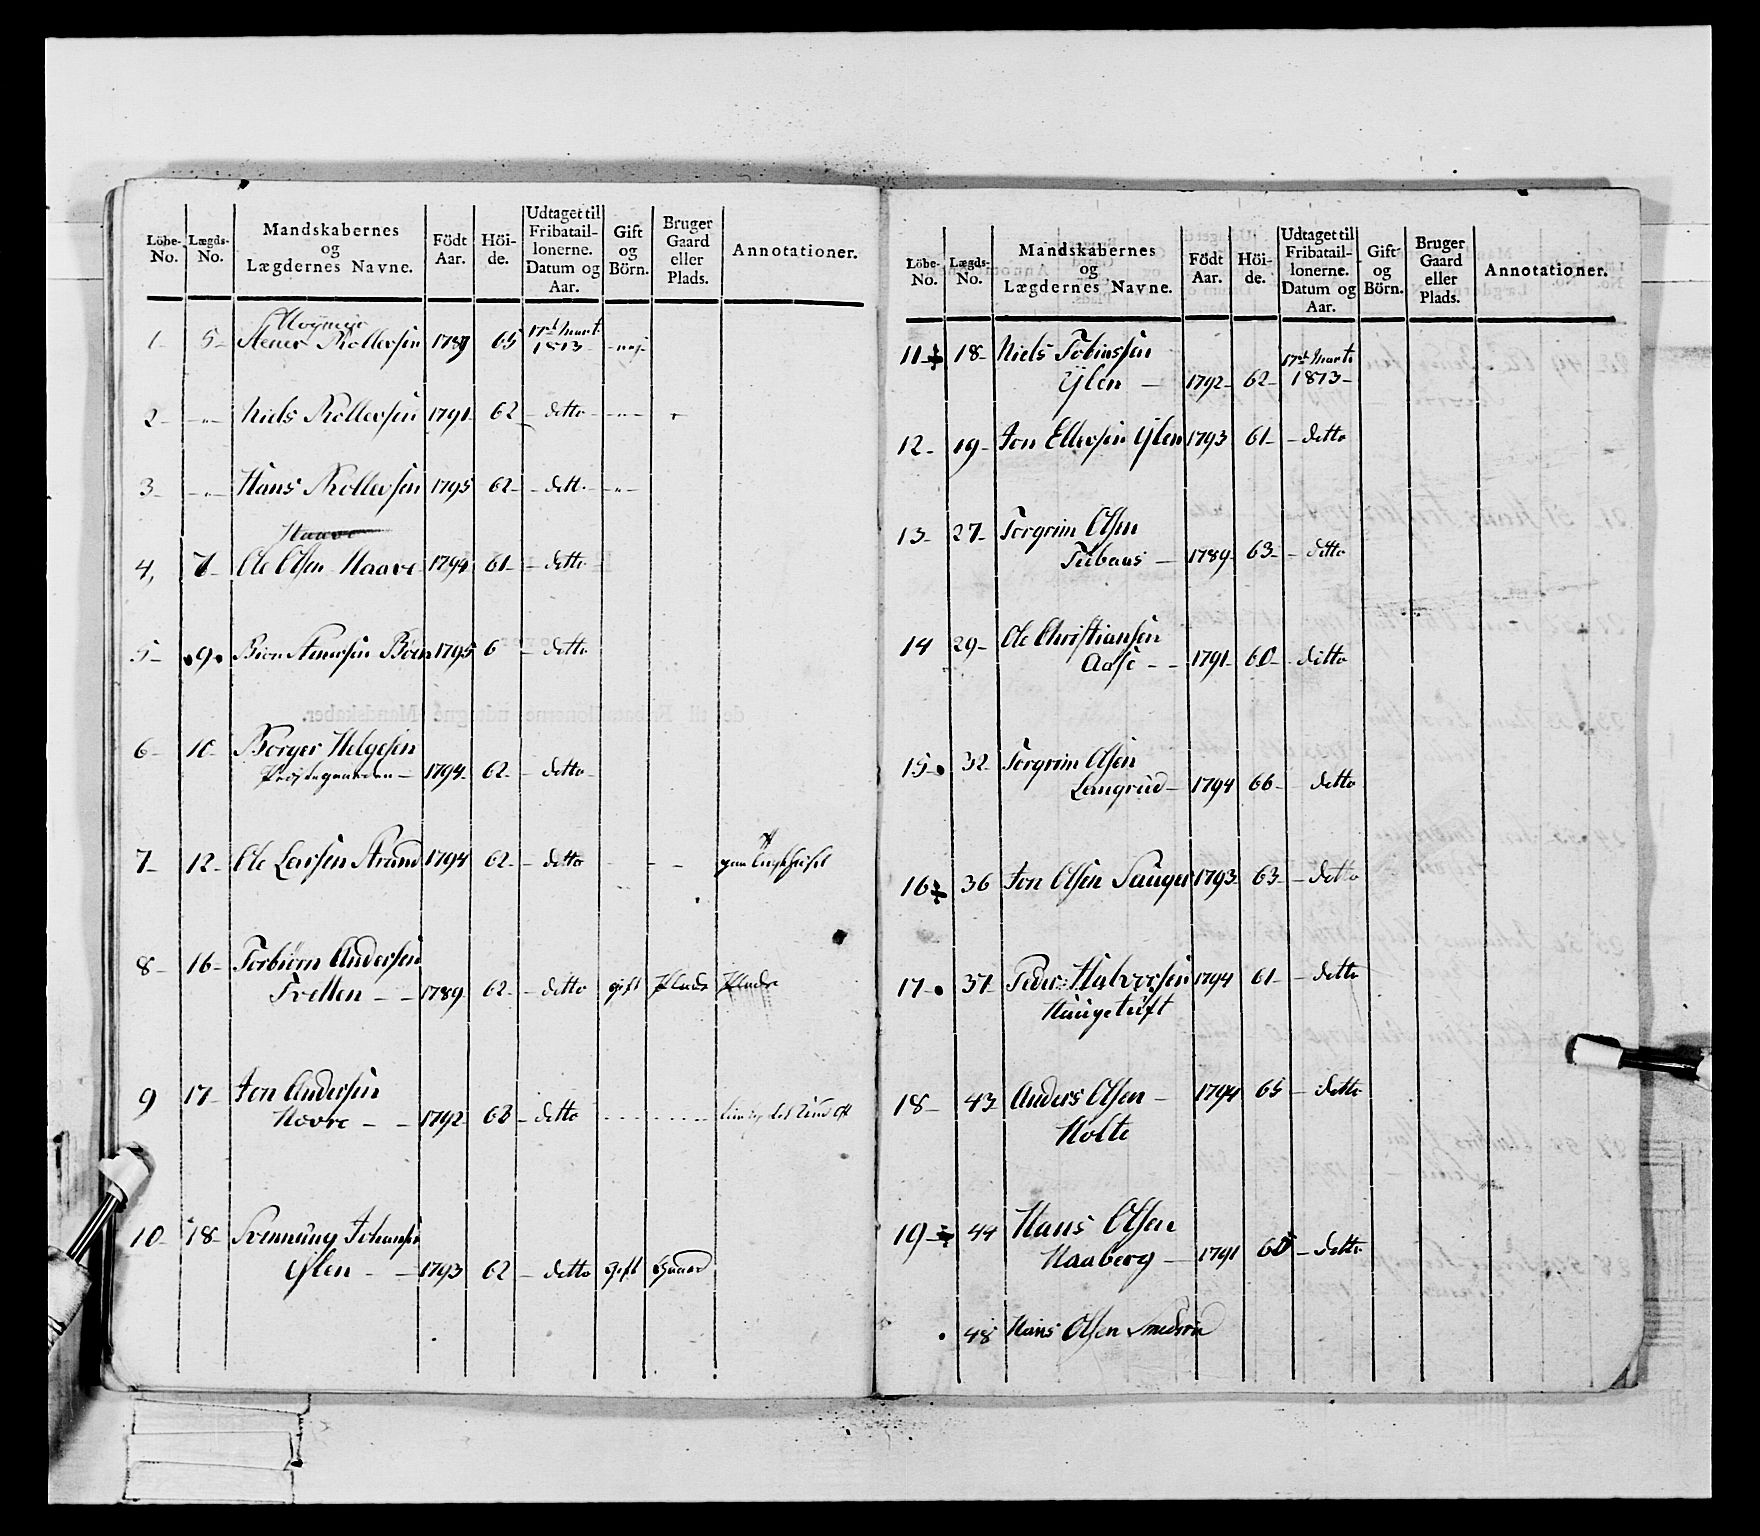 Löbe-No. Lægds-No. Mandskabernes og Lægdernes Navne. Födt Aar. Höi-de. Udtaget til Fribatail-lonerne. Datum og Aar. Gift og Börn. Bruger Gaard eller Plads. Annotationer.
1- 5- Stener Rollefsen 1789 65 17de Marts 1813- nej-
2- -"- Niels Rollefsen 1791 62 - detto -"-
3- -"- Hans Rollefsen 1795 62- - dett. -"-
Haave
4, 7- Ole Olsen Haave 1794 61- - detto
5- 9 1795 6 - detto
6- 10- Borger Helgesen
Præstegaarden - 1794 62- - detto-
7- 12- Ole Larsen Strand 1794 62- - detto - -
8- 16- Torbiörn Andersen
Tvetten - - 1789 62- - detto gift Plads Plads
9 17- Jon Andersen
Hovre - - 1792- 62 - detto
10- 18- Svenning Johansen
Ylen - - 1793 62 - detto Gift Gaard
Löbe-No. Lægds-No. Mandskabernes og Lægdernes Navne. Födt Aar. Höi-de. Udtaget til Fribatail-lonerne. Datum og Aar. Gift og Börn. Bruger Gaard eller Plads. Annotationer.
11 18- Niels Tobiassen
Ylen - 1792- 62- 17de Marts 1813-
12- 19- Jon Ellefsen Ylen 1793 61- - detto
13- 27- Torgrim Olsen
- 1789 63- - detto
14 29- Ole Christiansen
Aase - - 1791- 60- - ditto
15- 32- Torgrim Olsen
Langrud- 1794 66- - detto
16 36 Jon Olsen Sauger 1793 63- - detto
17- 37- Peder Halvorsen 1794 61- - detto
Haugetuft
18- 43 Anders Olsen - 1794 65 - detto
Holte
19- 44 Hans Olsen
Haaberg - 1791 60 - detto
48 Hans Olsen